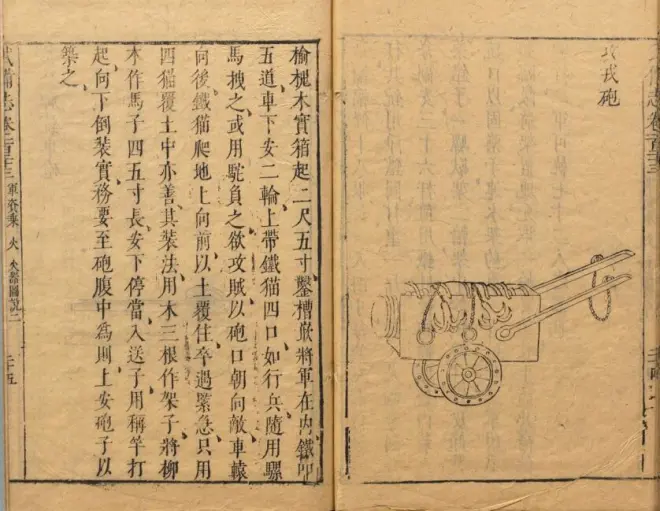 攻戎砲
榆槐木實箱起二尺五寸鑿槽嵌將軍在內鐵叩
五道車下安二輪上帶鐵猫四口如行兵隨用騾
馬拽之或用駝負之欲攻賊以砲口朝向敵車轅
向後鐵猫爬地上向前以土覆住卒過緊急只用
四猫覆土中亦善其裝法用木三根作架子將柳
木作馬子四五寸長安下停當入送子用稱竿打
起向下倒裝實務要至砲腹中為則上安砲子以
築之
備志 軍資乘 火 火器圖說二 二十五